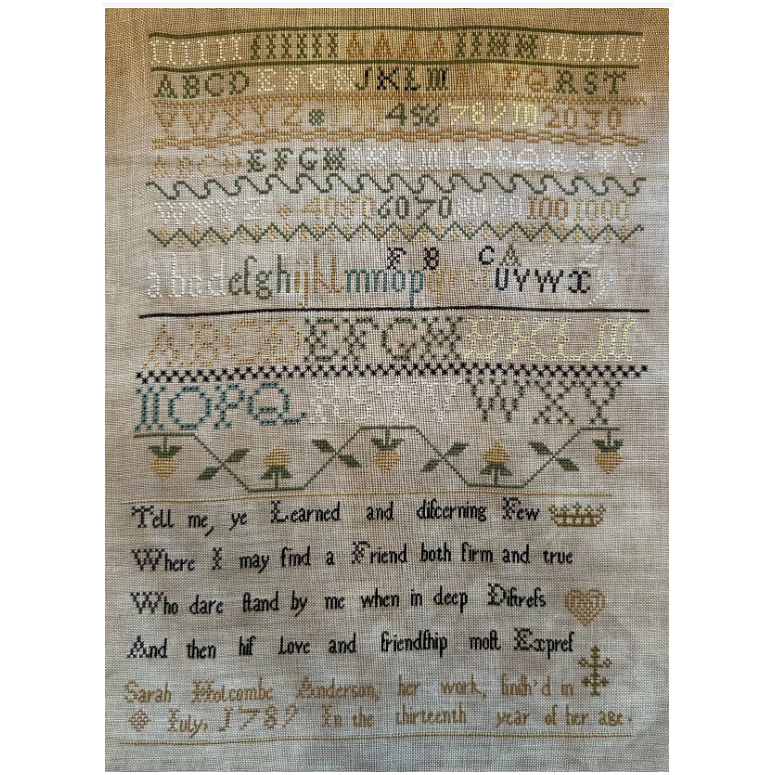 ABCD EFGH JKLM NOPQ RST
VWXYZ 456 78910 2030
ABCD EFGH IKLM NOPQ RSTV
WXYZ 4050 6070 8090 100 1000
F B C A
abcdefſghijklmnop UVWX
ABCD EFGH IKLM
NOPQ RSTV WXY
Tell me, ye Learned and diſcerning Few
Where I may find a Friend both firm and true
Who dare ſtand by me when in deep Diſtreſs
And then hiſ Love and friendſhip moſt Expreſ
Sarah Holcombe Anderson, her work, finiſh'd in
July, 1789 In the thirteenth year of her age.